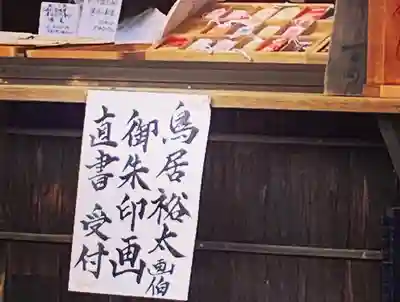 鳥居裕太画伯
御朱印画
直書受付